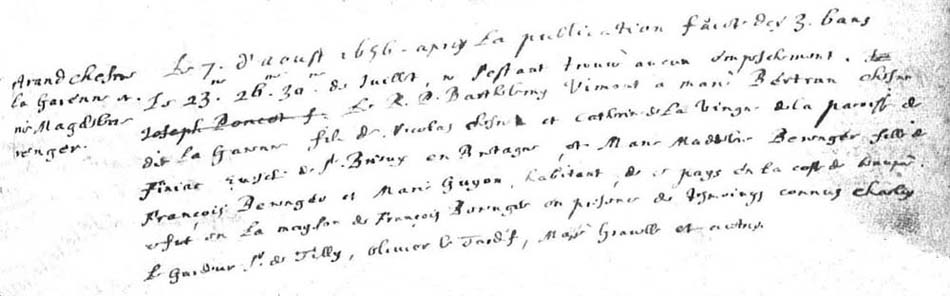 Le 7. d'aoust 1656. apres La publication faicte des 3. bans
le 23.me 26.me 30.me de Juillet, ne s'estant trouvé aucun empeschement. Le
Joseph Poncet f. Le R. P. Barthelemy Vimont a marié Bertran Chesne
dit La Garenne fils de Nicolas Chesne et Catherine La Vingne de la paroisse de
Finiac evesché de St. Brieux en Bretagne, et Marie Madeleine Berenger fille de
François Berenger et Marie Guyon, habitant de ce pays en la coste de
et fut en La mayson de François Berenger en presence de tesmoings connus Charles
le Gardeur Sr. de Tilly, Olivier le Tardif, Mazé Gravelle et autres.
Chesne
la Garenne et
Magdeleine
renger.